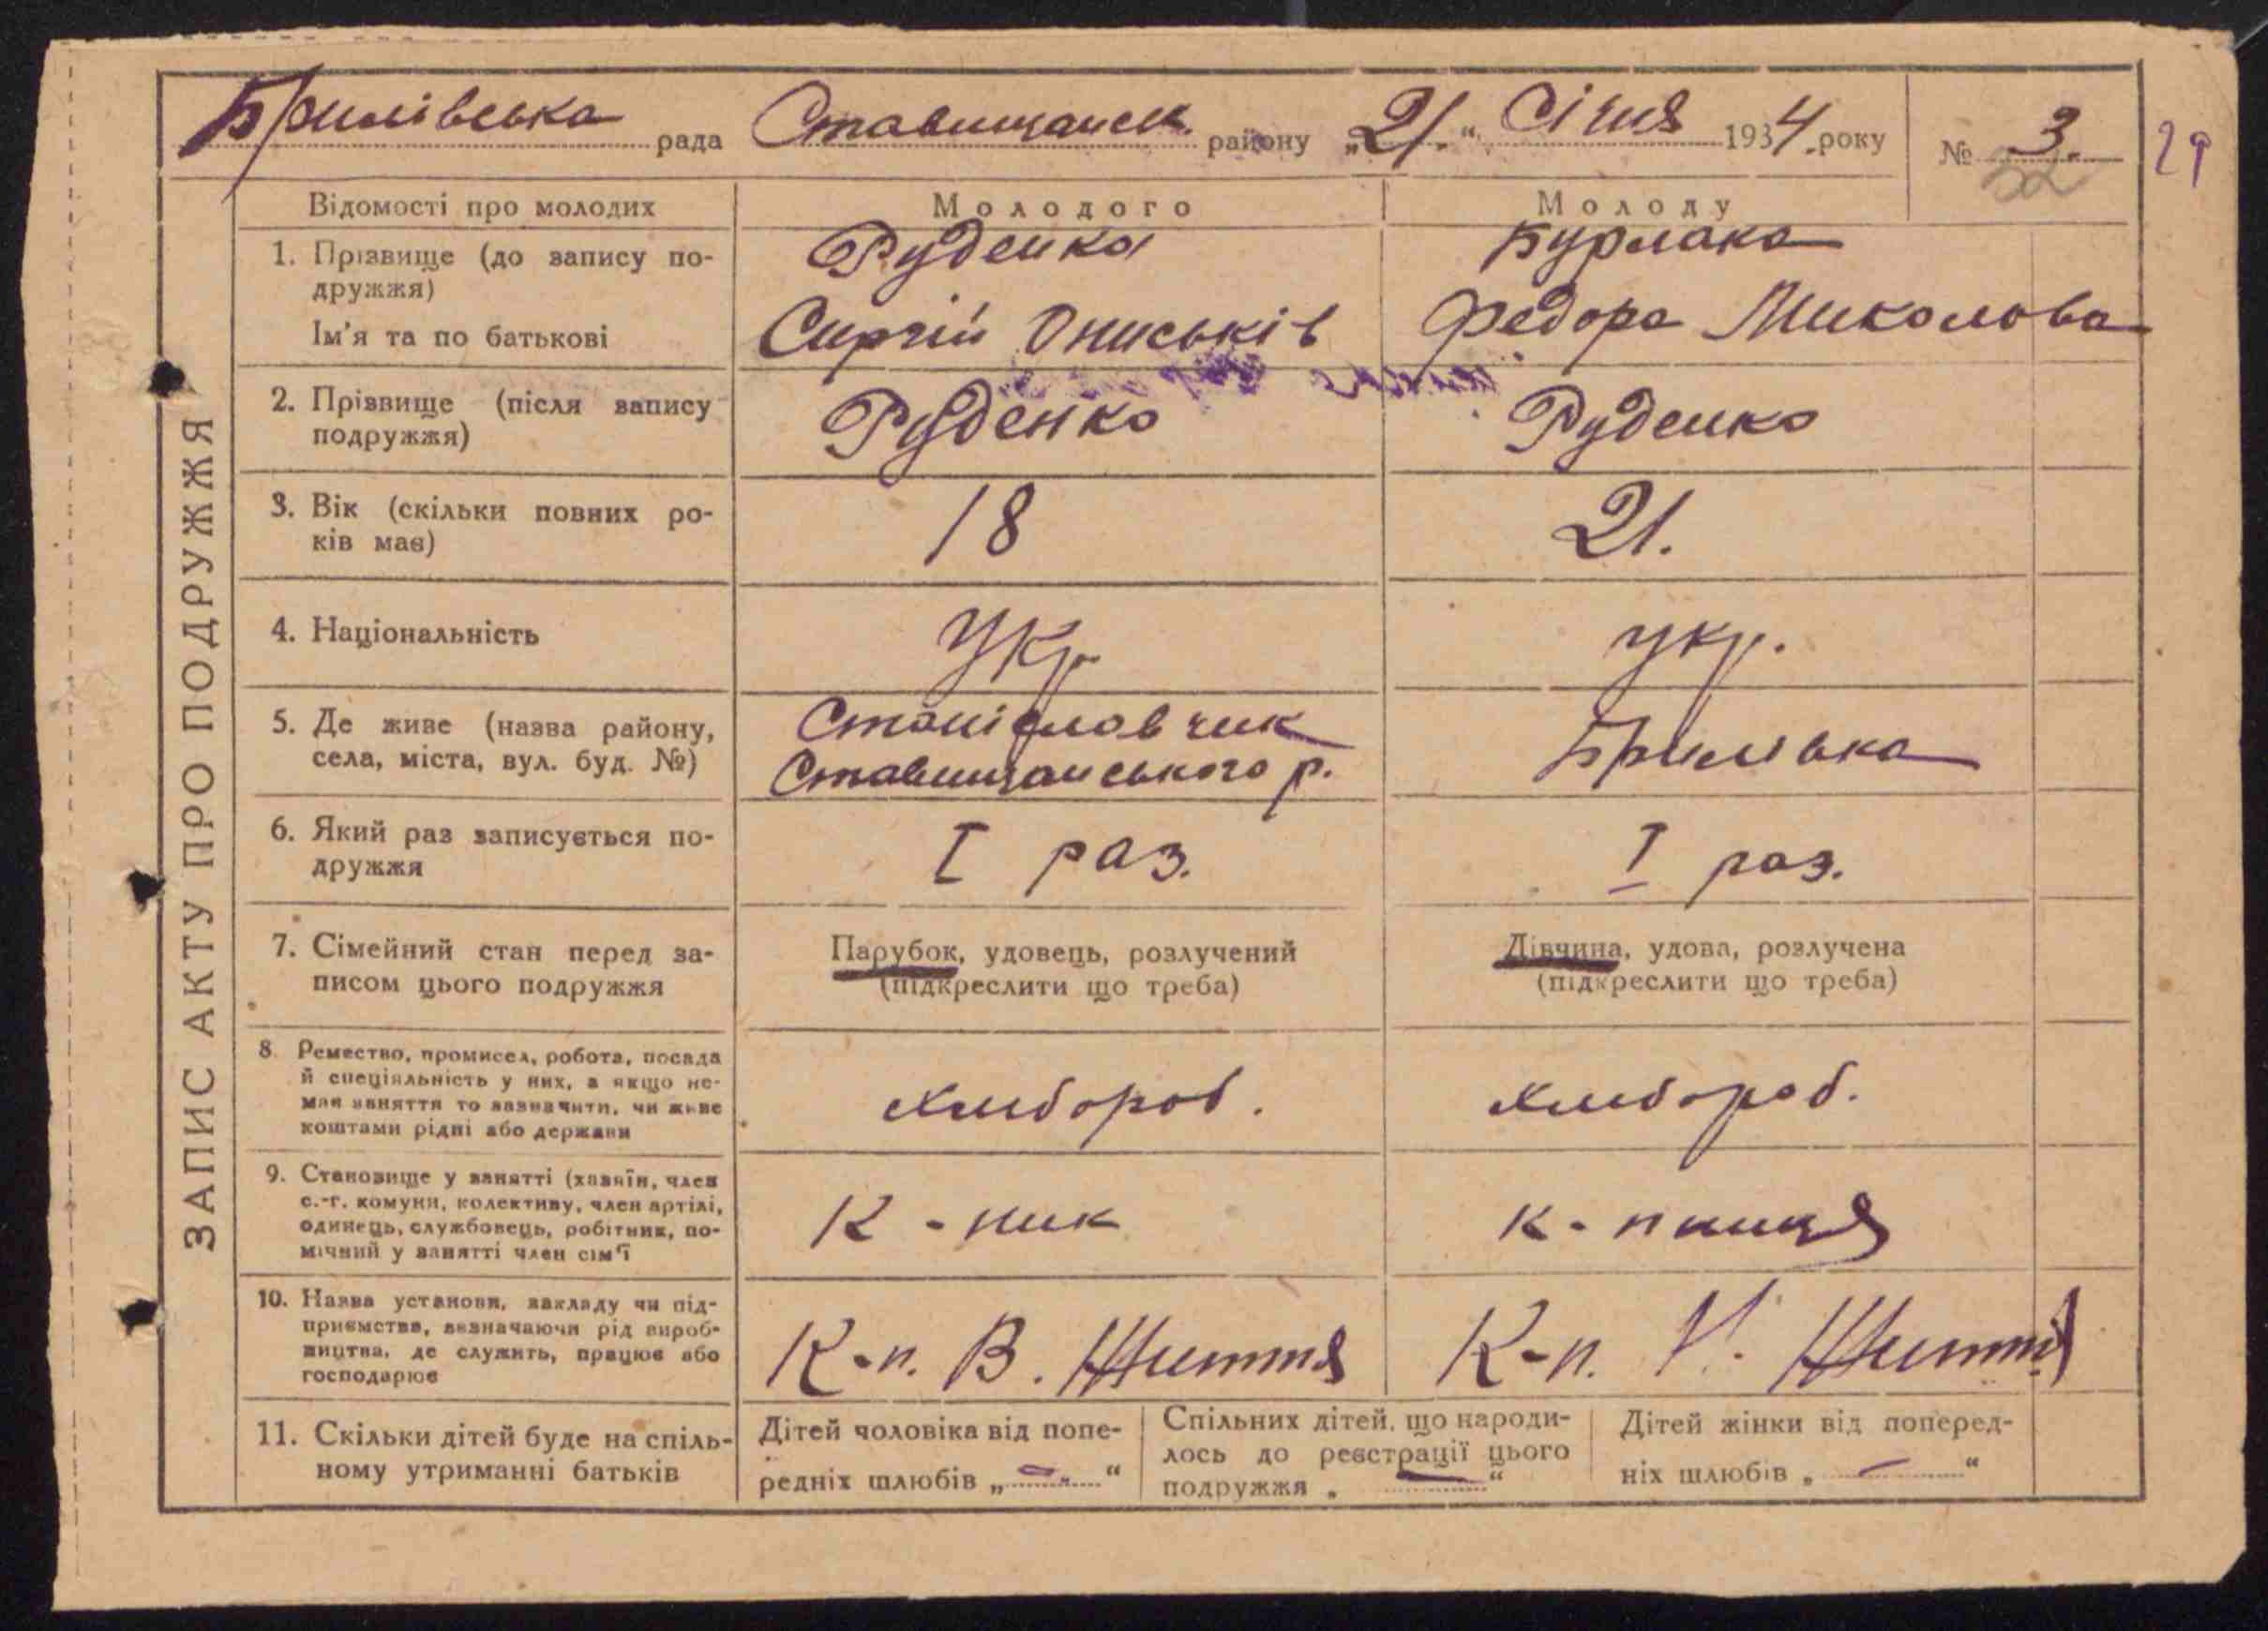 Брилівська рада Ставищанськ. району „21.“ Січня 1934 року № 3.
32
29
ЗАПИС АКТУ ПРО ПОДРУЖЖЯ
Відомості про молодих
Молодого
Молоду
1. Прізвище (до запису по-
дружжя)
Ім'я та по батькові
Руденко
Сиргій Ониськів
Бурлака
Федора Миколова
2. Прізвище (після запису
подружжя)
Руденко
Руденко
3. Вік (скільки повних ро-
ків має)
18
21.
4. Національність
Укр
укр.
5. Де живе (назва району,
села, міста, вул. буд. №)
Станіславчик
Ставищанського р.
Брилівка
6. Який раз записується по-
дружжя
I раз.
I раз.
7. Сімейний стан перед за-
писом цього подружжя
Парубок, удовець, розлучений
(підкреслити що треба)
Дівчина, удова, розлучена
(підкреслити що треба)
8. Ремество, промисел, робота, посада
й спеціяльність у них, а якщо не-
має заняття то зазначити, чи живе
коштами рідні або держави
хлибороб.
хлибороб.
9. Становище у занятті (хазяїн, член
с.-г. комуни, колективу, член артілі,
одинець, службовець, робітник, по-
мічний у занятті член сім'ї
К-ник
к-пниця
10. Назва установи, закладу чи під-
приємства, зазначаючи рід вироб-
ництва, де служить, працює або
господарює
К-п. В. Життя
К-п. Н. Життя
11. Скільки дітей буде на спіль-
ному утриманні батьків
Дітей чоловіка від попе-
редніх шлюбів „ — “
Спільних дітей, що народи-
лось до реєстрації цього
подружжя „ — “
Дітей жінки від поперед-
ніх шлюбів „ — “